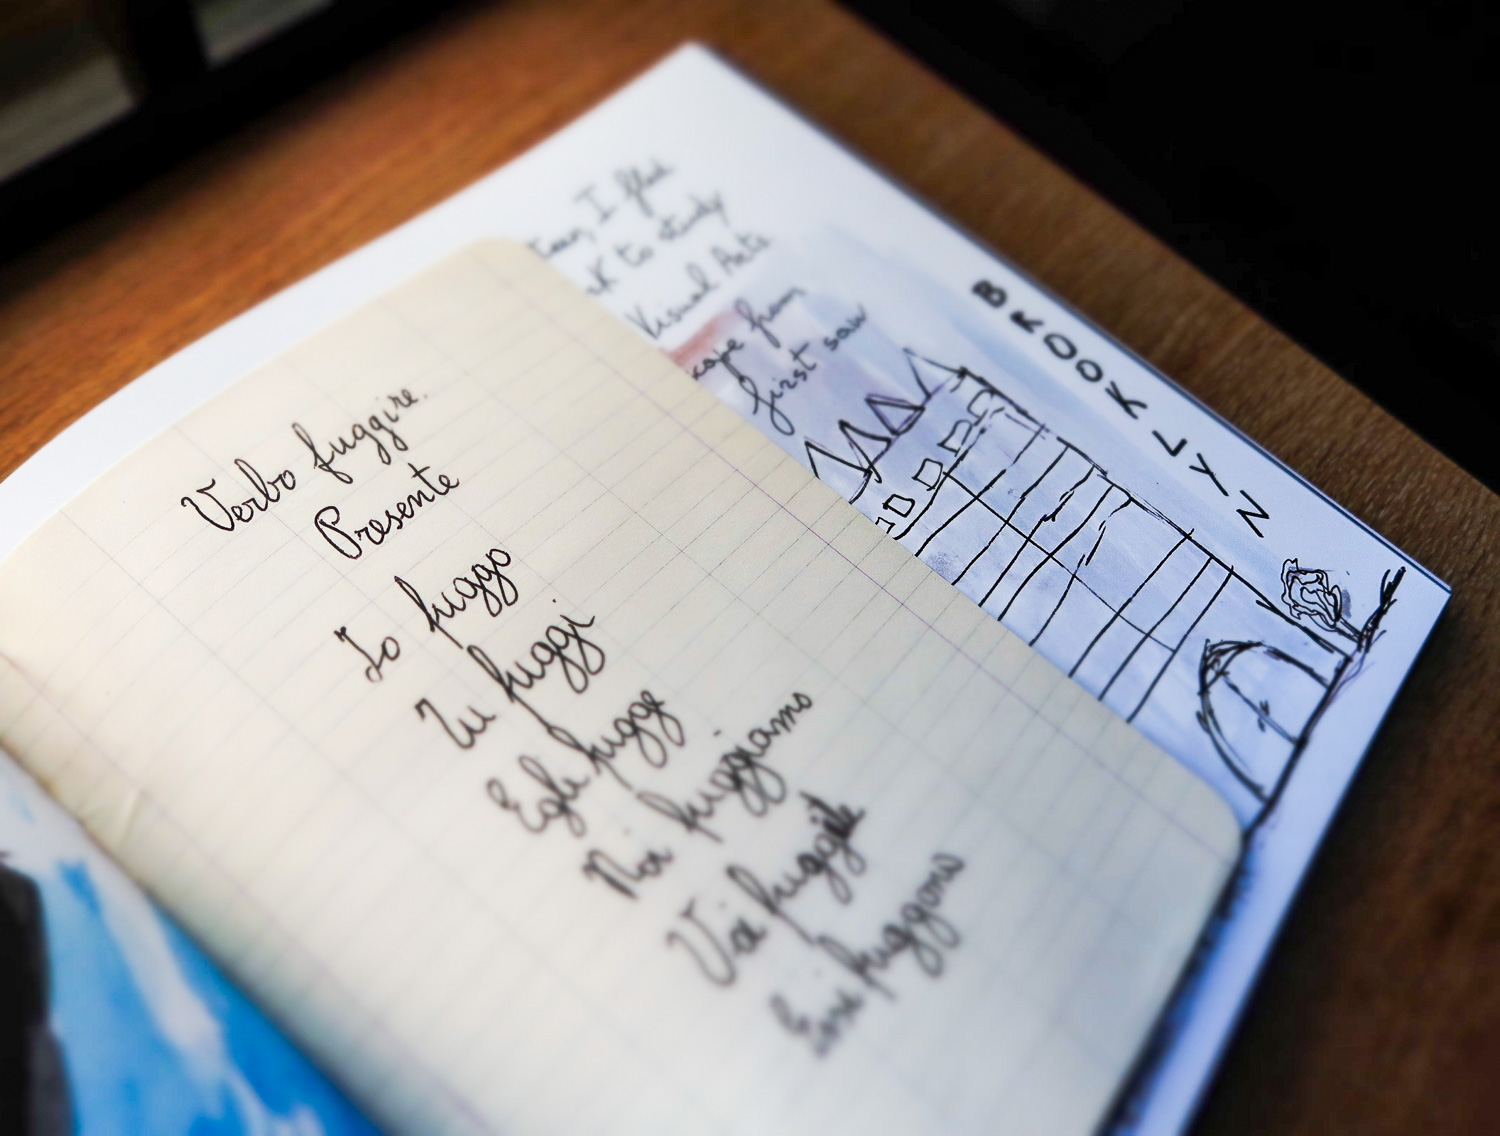 Verbo fuggire.
Presente
Io fuggo
Tu fuggi
Egli fugge
Noi fuggiamo
Voi fuggite
Essi fuggono
I fled
to study
Visual Arts
from
first saw
BROOKLYN